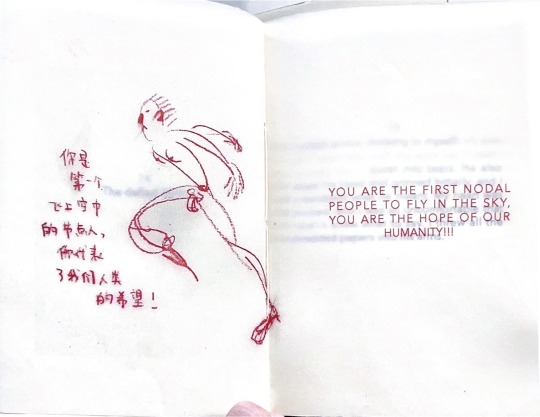 你是
第一个
飞上空中
的节点人，
你代表
了我们人类
的希望！
YOU ARE THE FIRST NODAL
PEOPLE TO FLY IN THE SKY,
YOU ARE THE HOPE OF OUR
HUMANITY!!!